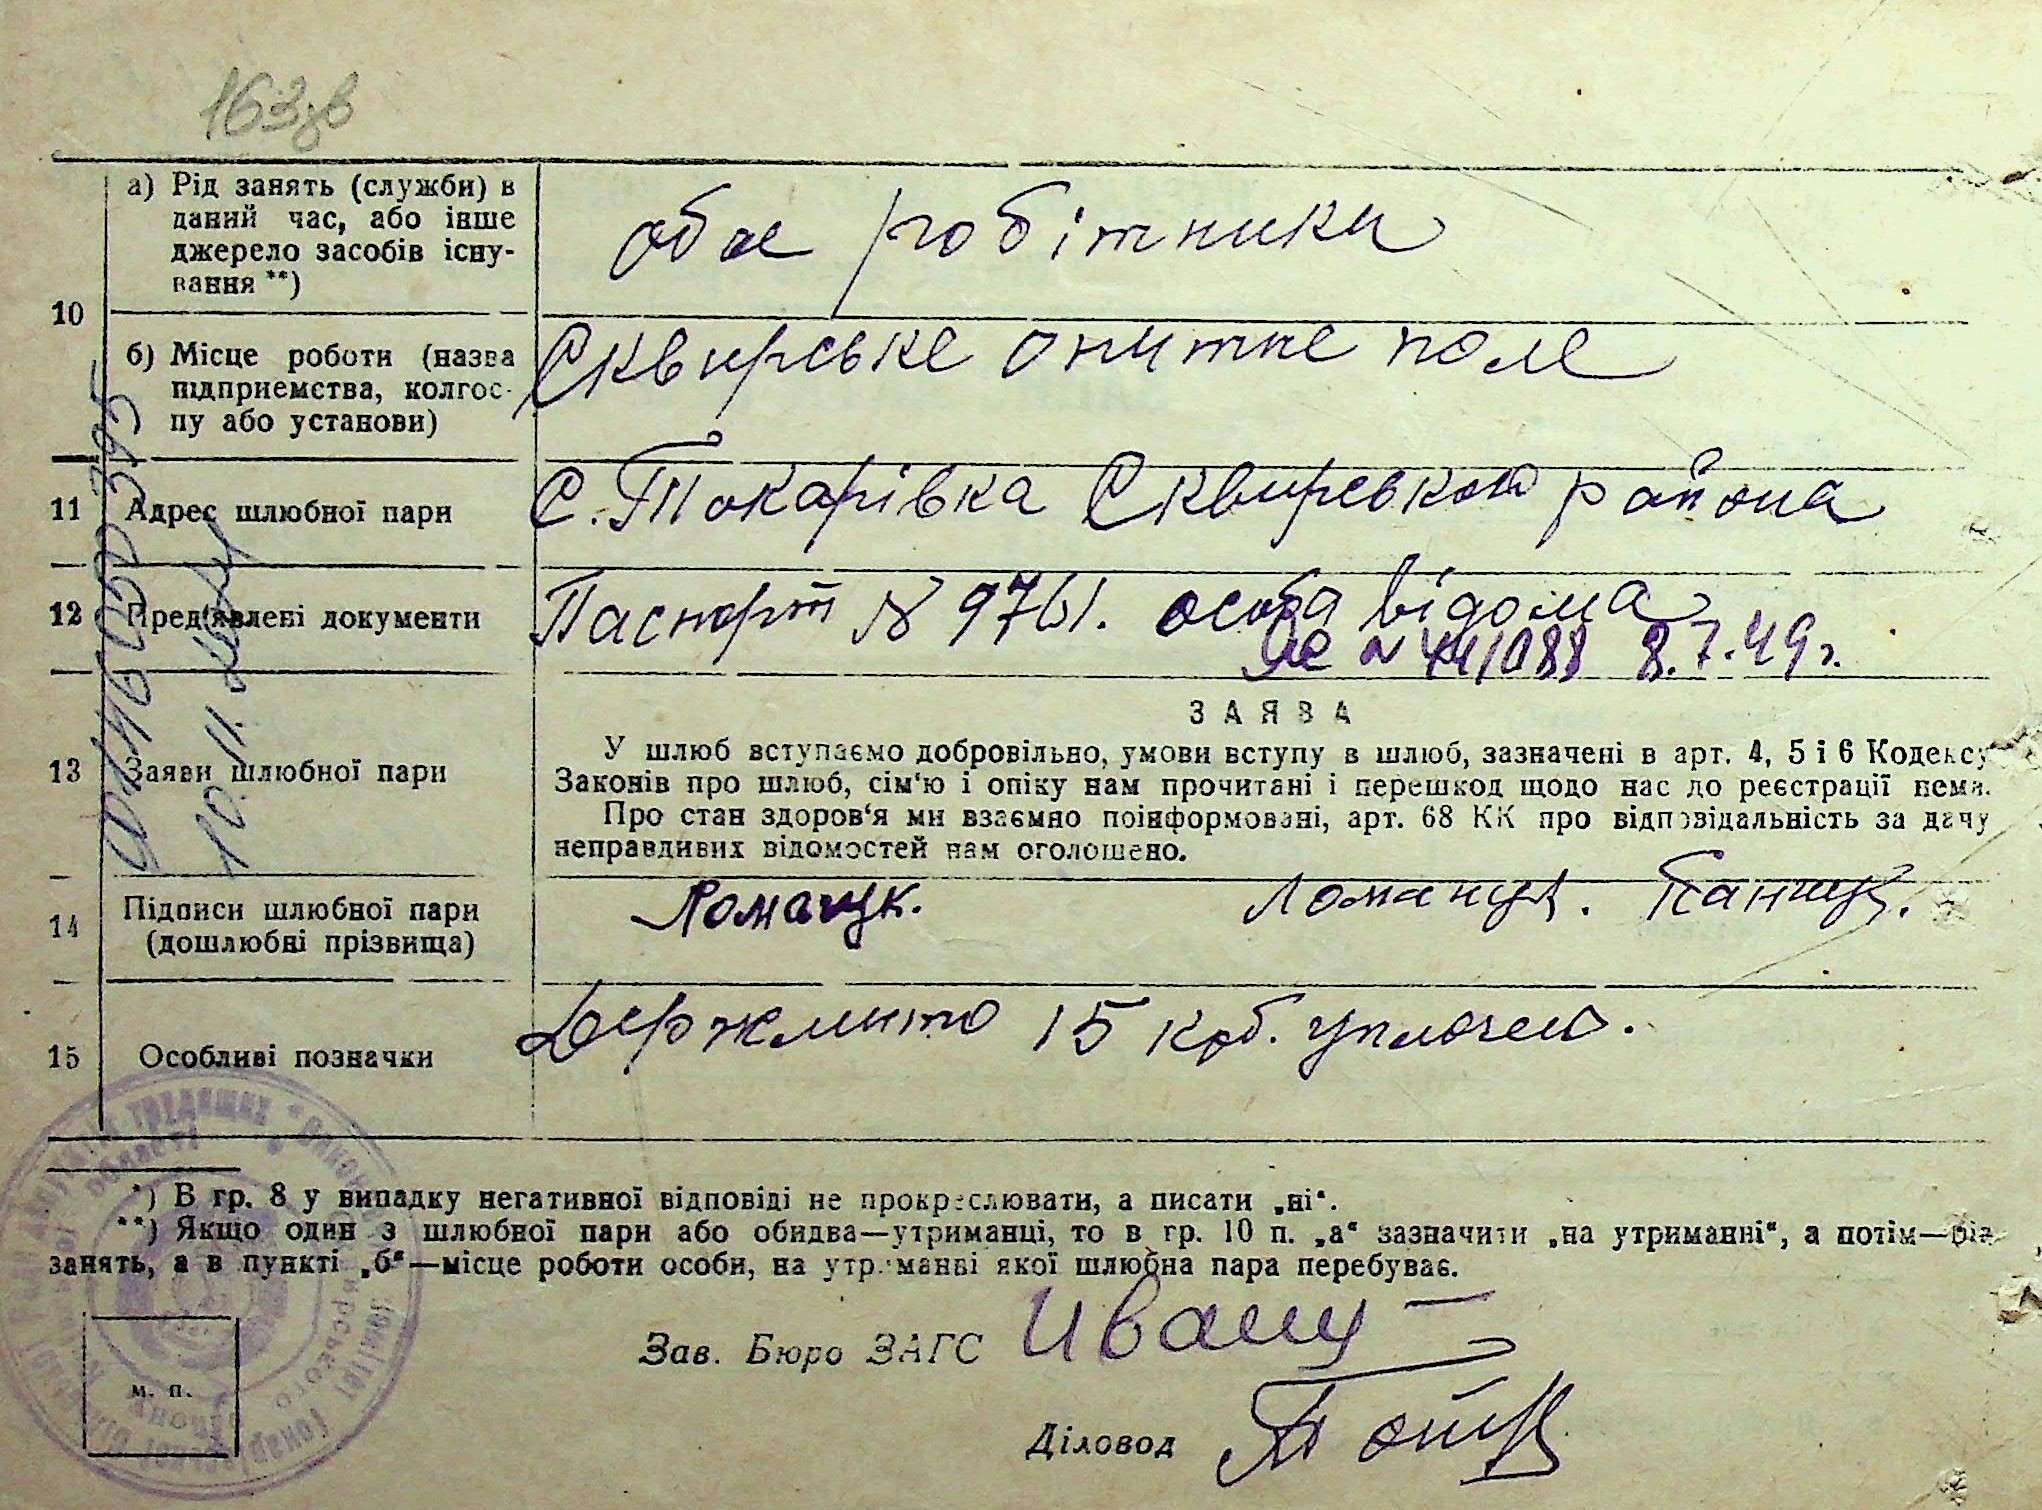 163зв
а) Рід занять (служби) в
даний час, або інше
джерело засобів існу-
вання **)
обоє робітники
10
б) Місце роботи (назва
підприємства, колгос-
пу або установи)
Сквирське опитне поле
11 Адрес шлюбної пари
С. Токарівка Сквирського района
12 Пред'явлені документи
Паспорт № 9761. особа відома
8.7.49г.
13 Заяви шлюбної пари
ЗАЯВА
У шлюб вступаємо добровільно, умови вступу в шлюб, зазначені в арт. 4, 5 і 6 Кодексу
Законів про шлюб, сім'ю і опіку нам прочитані і перешкод щодо нас до реєстрації нема.
Про стан здоров'я ми взаємно поінформовані, арт. 68 КК про відповідальність за дачу
неправдивих відомостей нам оголошено.
14 Підписи шлюбної пари
(дошлюбні прізвища)
15 Особливі позначки
Держмито 15 крб. уплочен.
*) В гр. 8 у випадку негативної відповіді не прокреслювати, а писати „ні“.
**) Якщо один з шлюбної пари або обидва—утриманці, то в гр. 10 п. „а“ зазначити „на утриманні“, а потім—рід
занять, а в пункті „б“—місце роботи особи, на утриманні якої шлюбна пара перебуває.
Зав. Бюро ЗАГС
Діловод
м. п.
10.11.